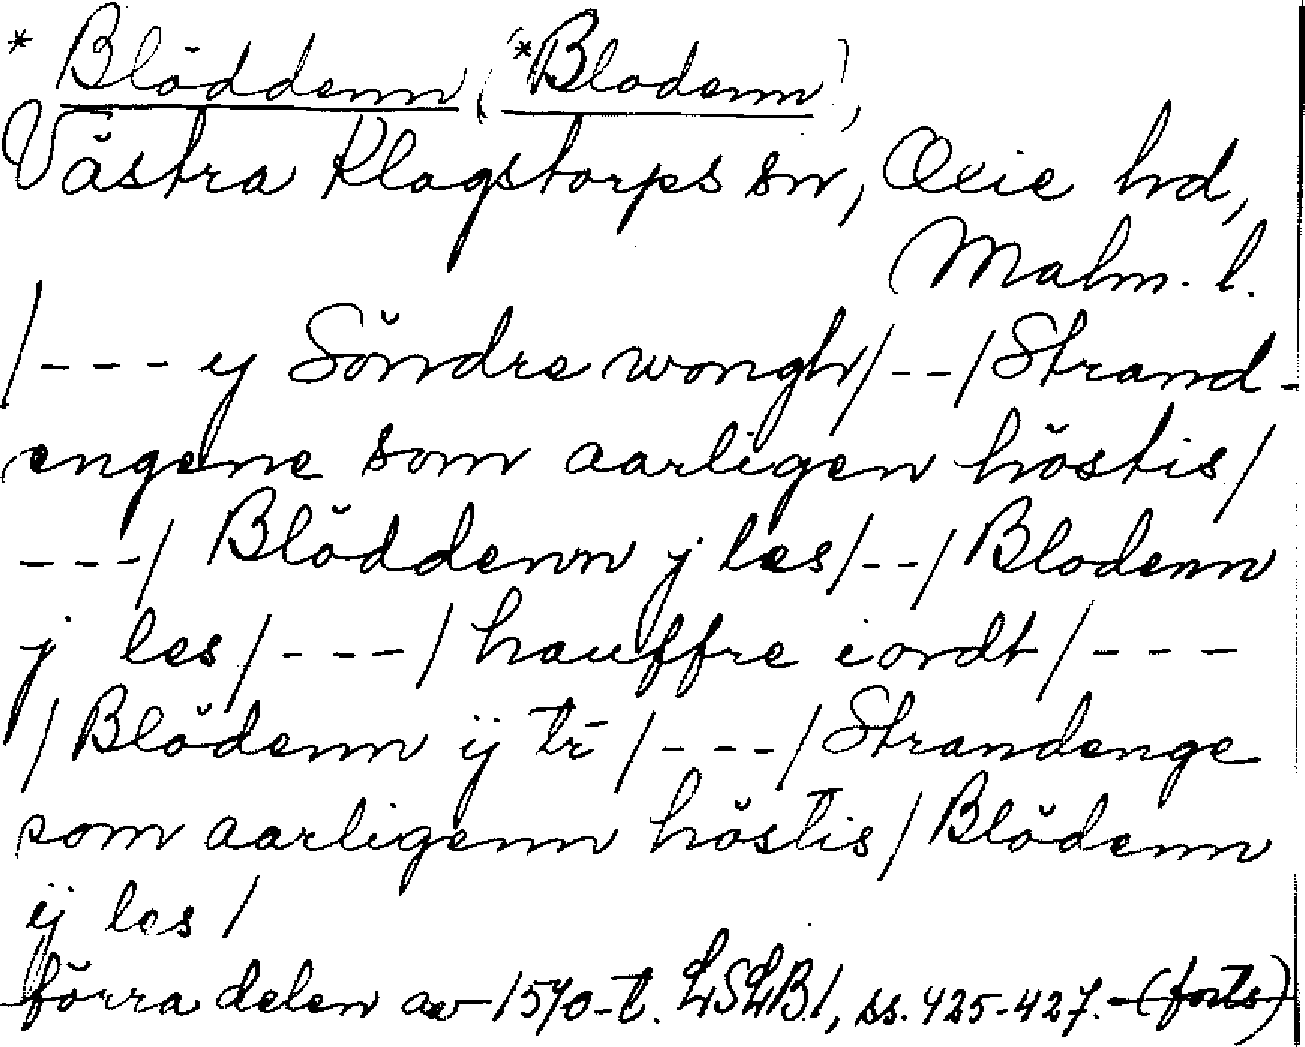 * Blŏddenn (*Blodenn),
Västra Klagstorps sn, Oxie hd,
Malm. l.
/--- ij Sŏndre wongh/--/Strand-
engene som aarligen hŏstis/
---/ Blŏddenn j les/--/Blodenn
j les/---/hauffre iordt/---
/Blŏdenn ij tr̄/---/Strandenge
som aarligenn hŏstis/Blŏdenn
ij les/
förra delen av 1570-t. LSLB1, ss. 425-427. (forts)